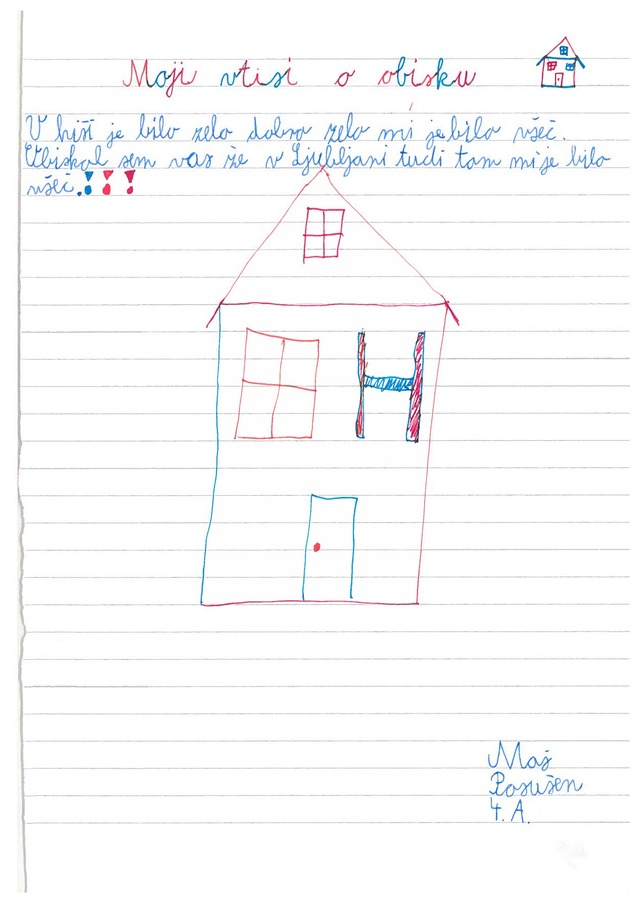 Moji vtisi o obisku
V hiši je bilo zelo dobro zelo mi je bilo všeč.
Obiskal sem vas že v Ljubljani tudi tam mi je bilo
všeč.!!!
H
Maš
Posušen
4. A.